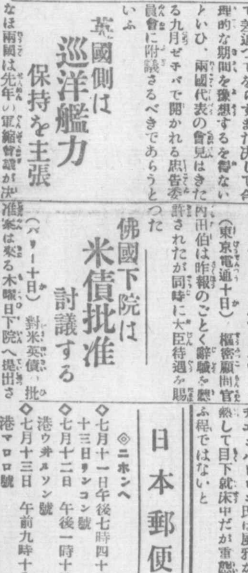 理的な期間を豫想するを得ない
といひ、兩國代表の會見はきた
る九月ゼネバで開かれる忠告委
員會に附議さるべきであらうと
いふ
英國側は
巡洋艦力
保持を主張
なほ兩國は先年の軍縮會議が決
(東京電通十日) 樞密顧問官
内田伯は昨報のごとく辭職を聽
許されたが同時に大臣待遇を賜
つた
佛國下院は
米債批准
討議する
(パリー十日) 對米英債の批
准案は來る木曜日下院へ提出さ
氏は風邪
熱して目下就床中だが重態
ふ程ではないと
日本郵便
◎ニホンへ
◇七月十一日午後七時四十
十三日リンコン號
◇七月十二日 午後一時十
港ウ井ルソン號
◇七月十三日 午前九時十
港マロロ號